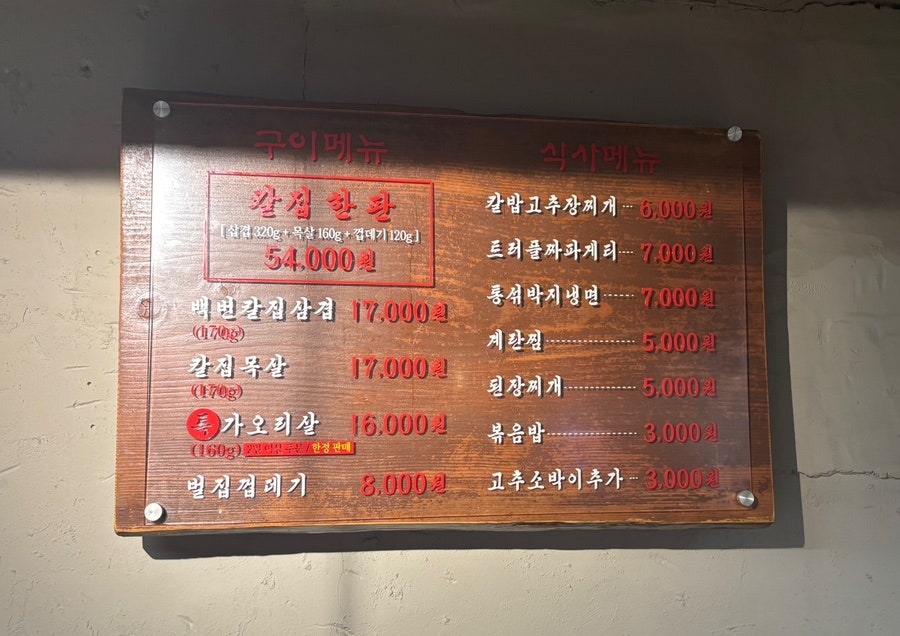 구이메뉴
칼집한판
[ 삼겹 320g + 목살 160g + 껍데기 120g ]
54,000원
백번칼집삼겹 17,000원
(170g)
칼집목살 17,000원
(170g)
특 가오리살 16,000원
(160g) 한정 판매
벌집껍데기 8,000원
식사메뉴
칼밥고추장찌개 6,000원
트러플짜파게티 7,000원
통섞박지냉면 7,000원
계란찜 5,000원
된장찌개 5,000원
볶음밥 3,000원
고추소박이추가 3,000원